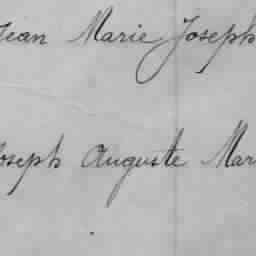 Jean Marie Joseph
Joseph Auguste Mar